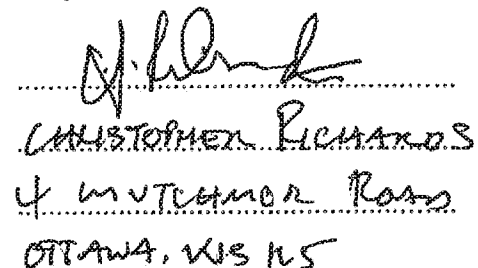 CHRISTOPHER RICHARDS
4 MUTCHMOR ROAD
OTTAWA, K1S 1L5